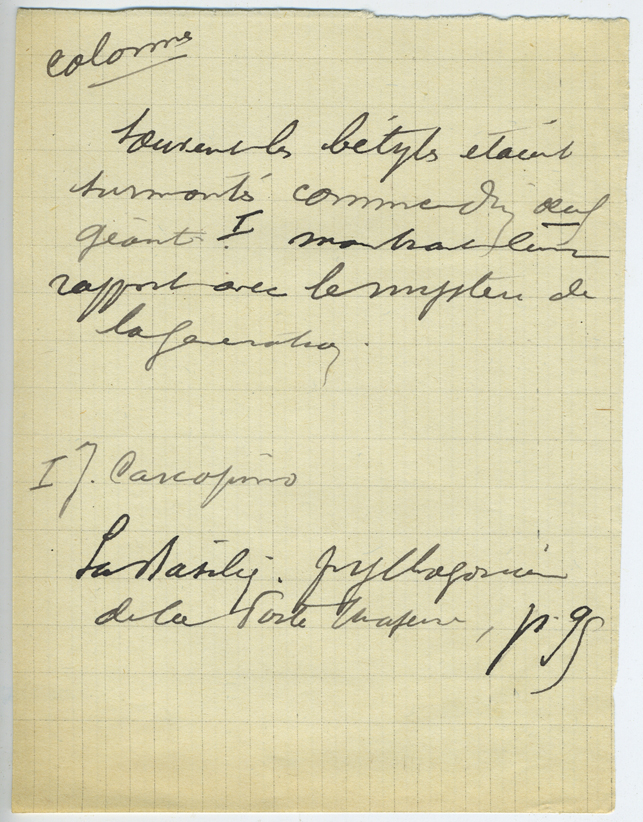 colonne
Souvent les bétyles étaient
surmontés comme d'un œuf
géant I montrant leur
rapport avec le mystère de
la génération.
I J. Carcopino
La Basiliq. pythagoricien
de la Porte Majeure, p. 95